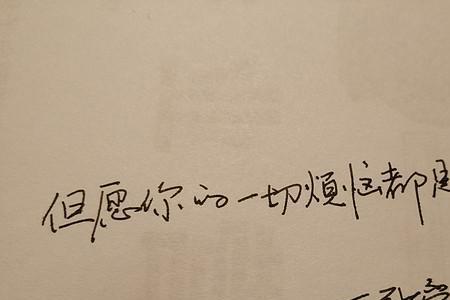 但愿你的一切煩恼都